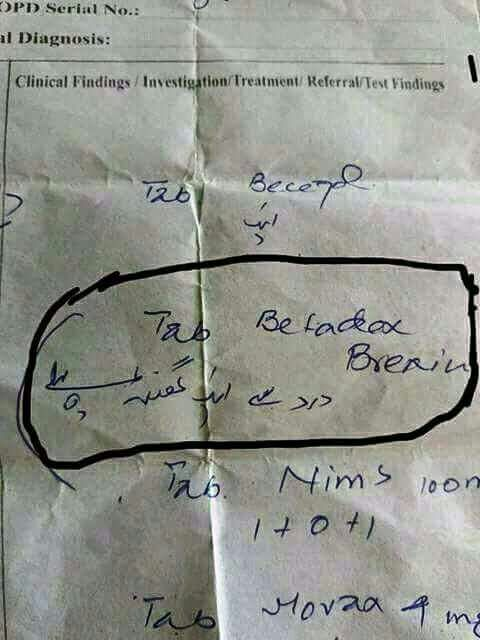 OPD Serial No.:
al Diagnosis:
Clinical Findings / Investigation/Treatment/ Referral/Test Findings
Tab Becegol
ایک
Tab Befadox
Brexin
درد سے ایک گھنٹہ
Tab. Nims 100m
1 + 0 + 1
Tab Movax 4 mg